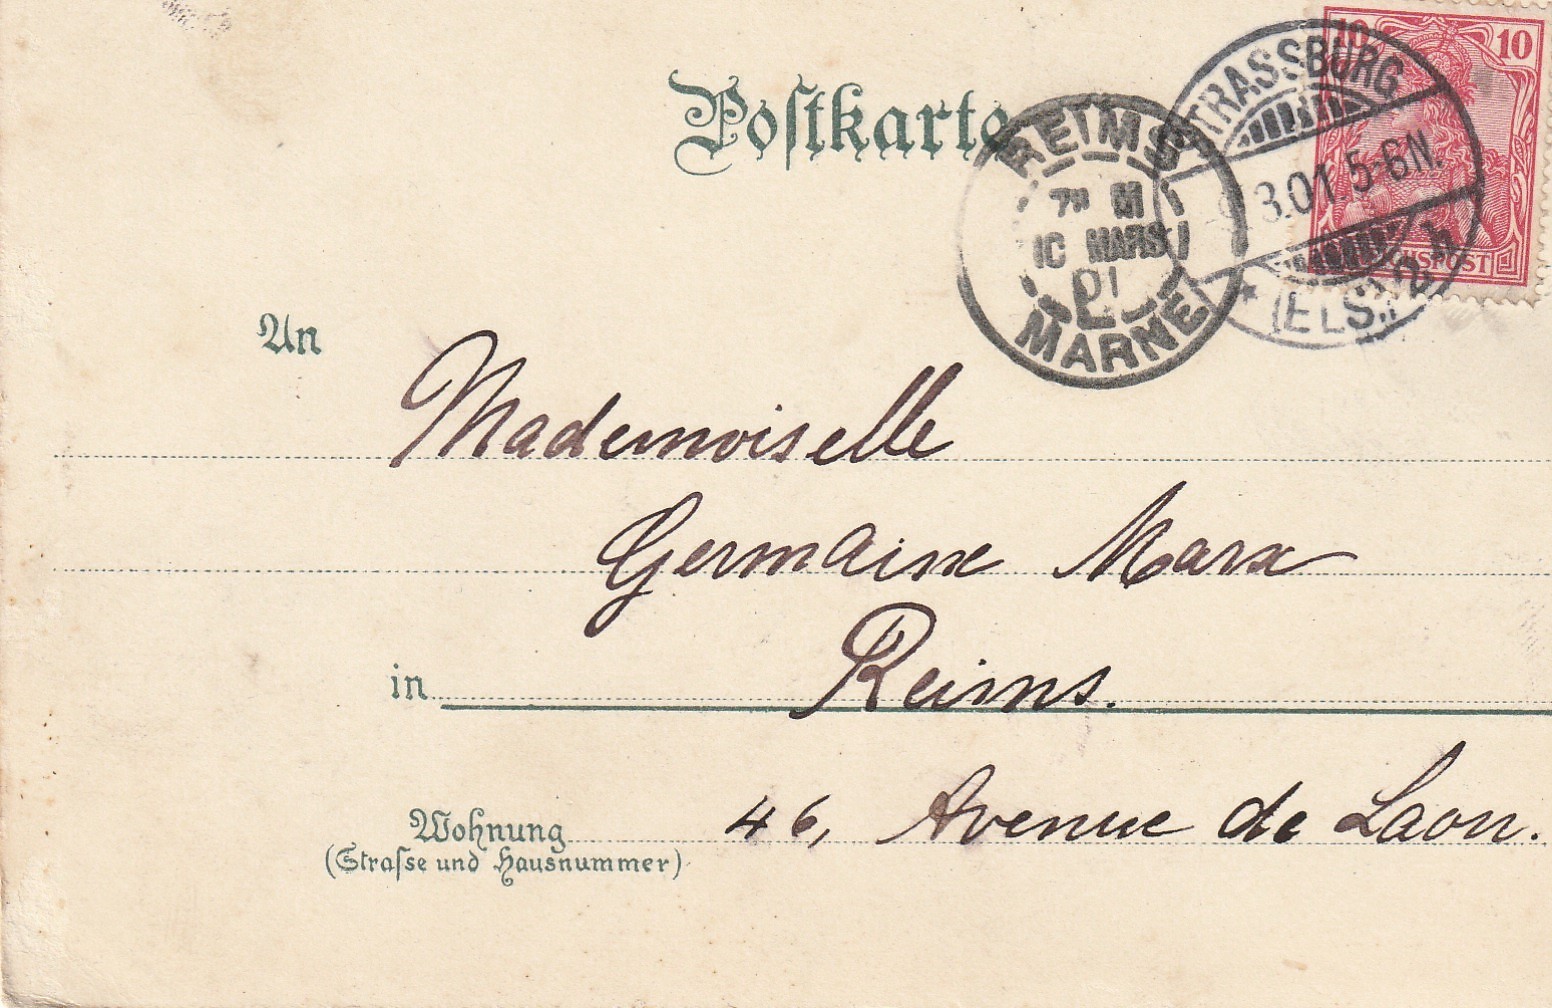 Postkarte
10 10
STRASSBURG
3.01.5-6N.
* (ELS.) 2 h
REICHSPOST
REIMS
10 MARS
01
MARNE
An
Mademoiselle
Germaine Marx
in Reims.
Wohnung 46, Avenue de Laon.
(Straſse und Hausnummer)